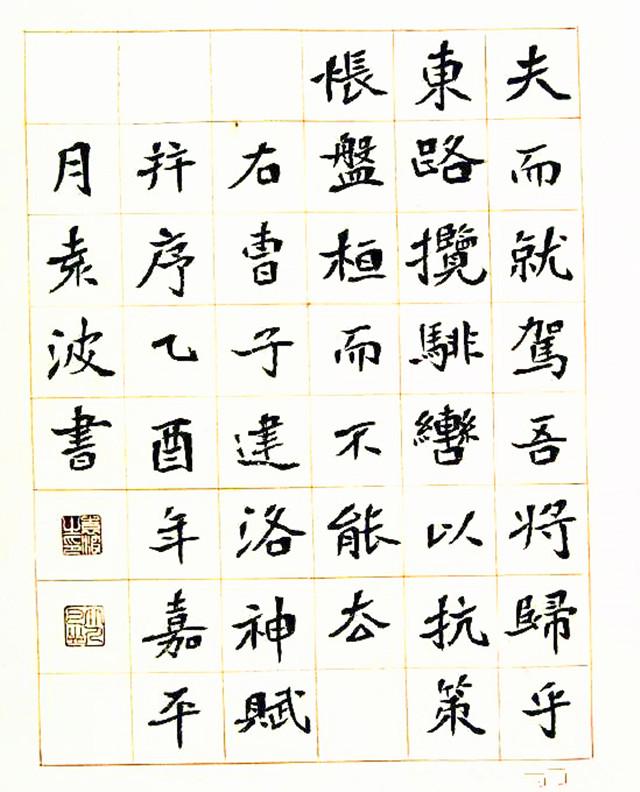 夫而就駕吾將歸乎
東路攬騑轡以抗策
悵盤桓而不能去
右曹子建洛神賦
并序乙酉年嘉平
月袁波書
袁波之印